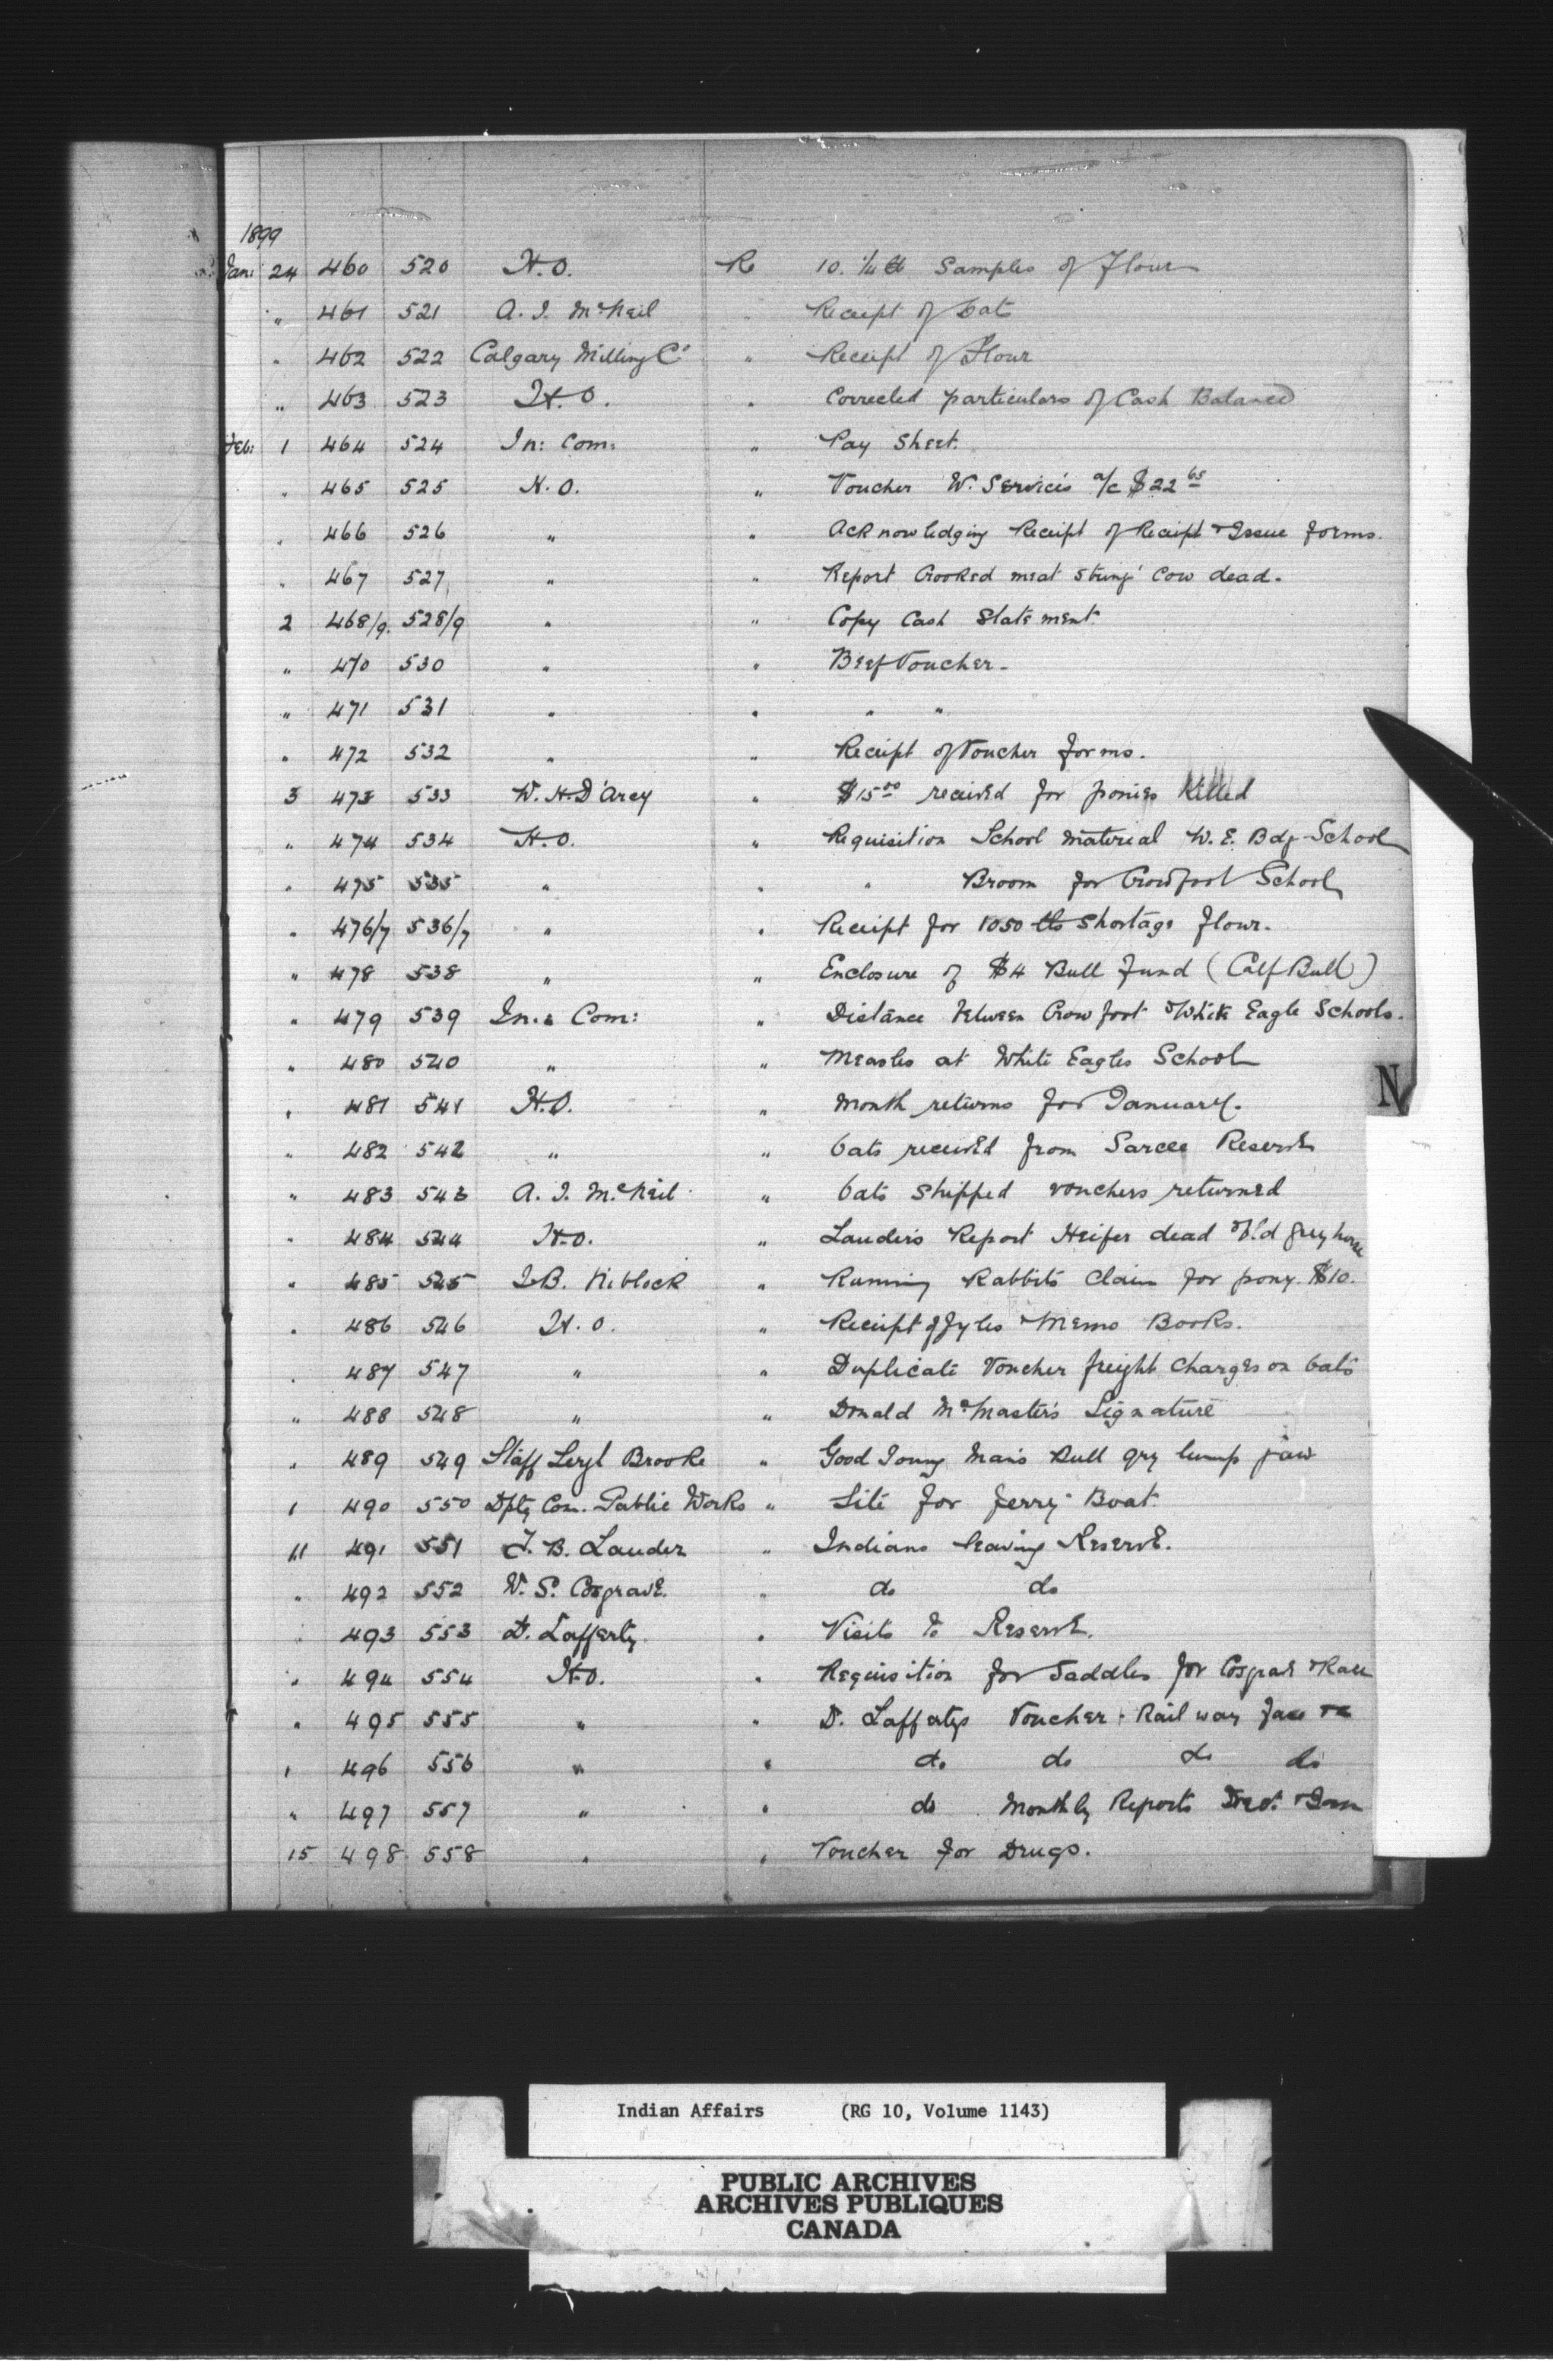 1899
Jan: 24 460 520 H.O. Re 10. 1/4 lb Samples of Flour
" 461 521 A. J. McNeil " Receipt of Oats
" 462 522 Calgary Milling Co " Receipt of Flour
" 463 523 H.O. " Corrected particulars of Cash Balance
Feb: 1 464 524 In: Com: " Pay Sheet.
" 465 525 H.O. " Voucher W. Service's a/c $22 65
" 466 526 " " Acknowledging Receipt of Receipt & Issue forms.
" 467 527 " " Report Crooked meat strings' cow dead.
2 468/9. 528/9 " " Copy Cash Statement.
" 470 530 " " Beef Voucher.
" 471 531 " " " "
" 472 532 " " Receipt of Voucher forms.
3 473 533 W. H. D'Arcy " $15.00 received for ponies Killed
" 474 534 H.O. " Requisition School material W. E. Bdg School
" 475 535 " " " Broom for Crowfoot School
" 476/7 536/7 " " Receipt for 1050 lbs Shortage flour.
" 478 538 " " Enclosure of $4 Bull Fund (Calf Bull)
" 479 539 In: Com: " Distance between Crowfoot & White Eagle Schools.
" 480 540 " " Measles at White Eagles School
" 481 541 H.O. " Month returns for January.
" 482 542 " " Oats received from Sarcee Reserve
" 483 543 A. J. McNeil " Oats shipped vouchers returned
" 484 544 H.O. " Lauder's Report Heifer dead & old grey horse
" 485 545 J.B. Niblock " Running Rabbits Claim for pony $10.
" 486 546 H.O. " Receipt of fyles & Memo Books.
" 487 547 " " Duplicate Voucher freight Charges on Oats
" 488 548 " " Donald McMaster's Signature
" 489 549 Staff Sergt Brooke " Good Young Man's Bull qry lump jaw
" 490 550 Dpty Com. Public Works " Site for ferry Boat.
11 491 551 J. B. Lauder " Indians leaving Reserve.
" 492 552 W. S. Cosgrave. " do do
" 493 553 D. Lafferty. " Visits to Reserve.
" 494 554 H.O. " Requisition for Saddles for Cosgrave &
" 495 555 " " D. Laffertys Voucher Railway fare
" 496 556 " " do do do do
" 497 557 " " do Monthly Reports Dec. &
15 498 558 " " Voucher for Drugs.
N
Indian Affairs (RG 10, Volume 1143)
PUBLIC ARCHIVES
ARCHIVES PUBLIQUES
CANADA